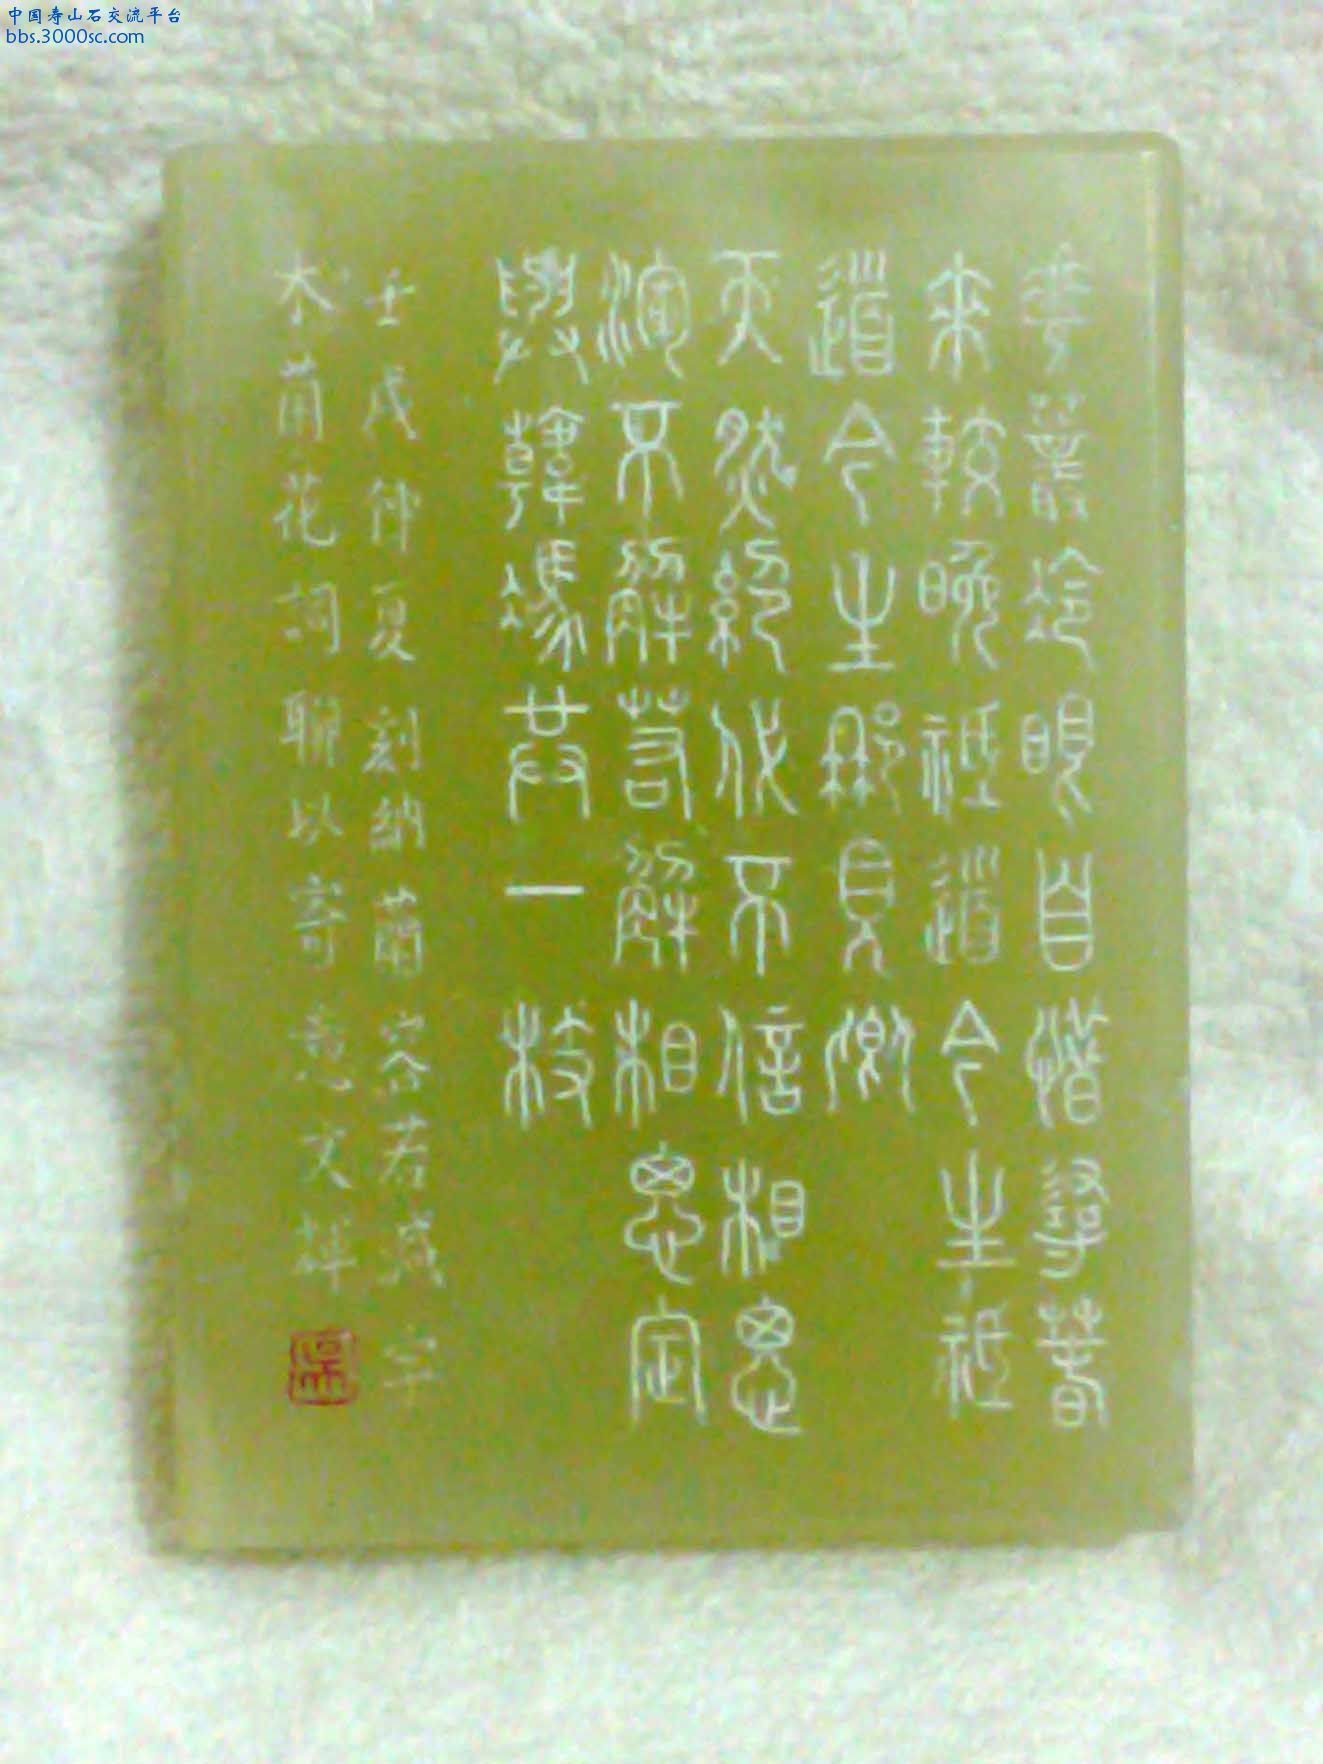 中国寿山石交流平台
bbs.3000sc.com
華叢冷眼自惜尋春
來較晚祗道今生祗
道今生那見卿
天然絕代不信相思
渾不解若解相思定
與韓馮共一枝
壬戌仲夏刻納蘭容若減字
木蘭花詞聊以寄意文輝